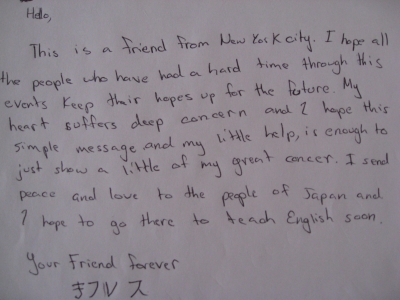 Hello,
This is a friend from New York city. I hope all
the people who have had a hard time through this
events keep their hopes up for the future. My
heart suffers deep concern and I hope this
simple message and my little help, is enough to
just show a little of my great concer. I send
peace and love to the people of Japan and
I hope to go there to teach English soon.
Your Friend forever
フル ス